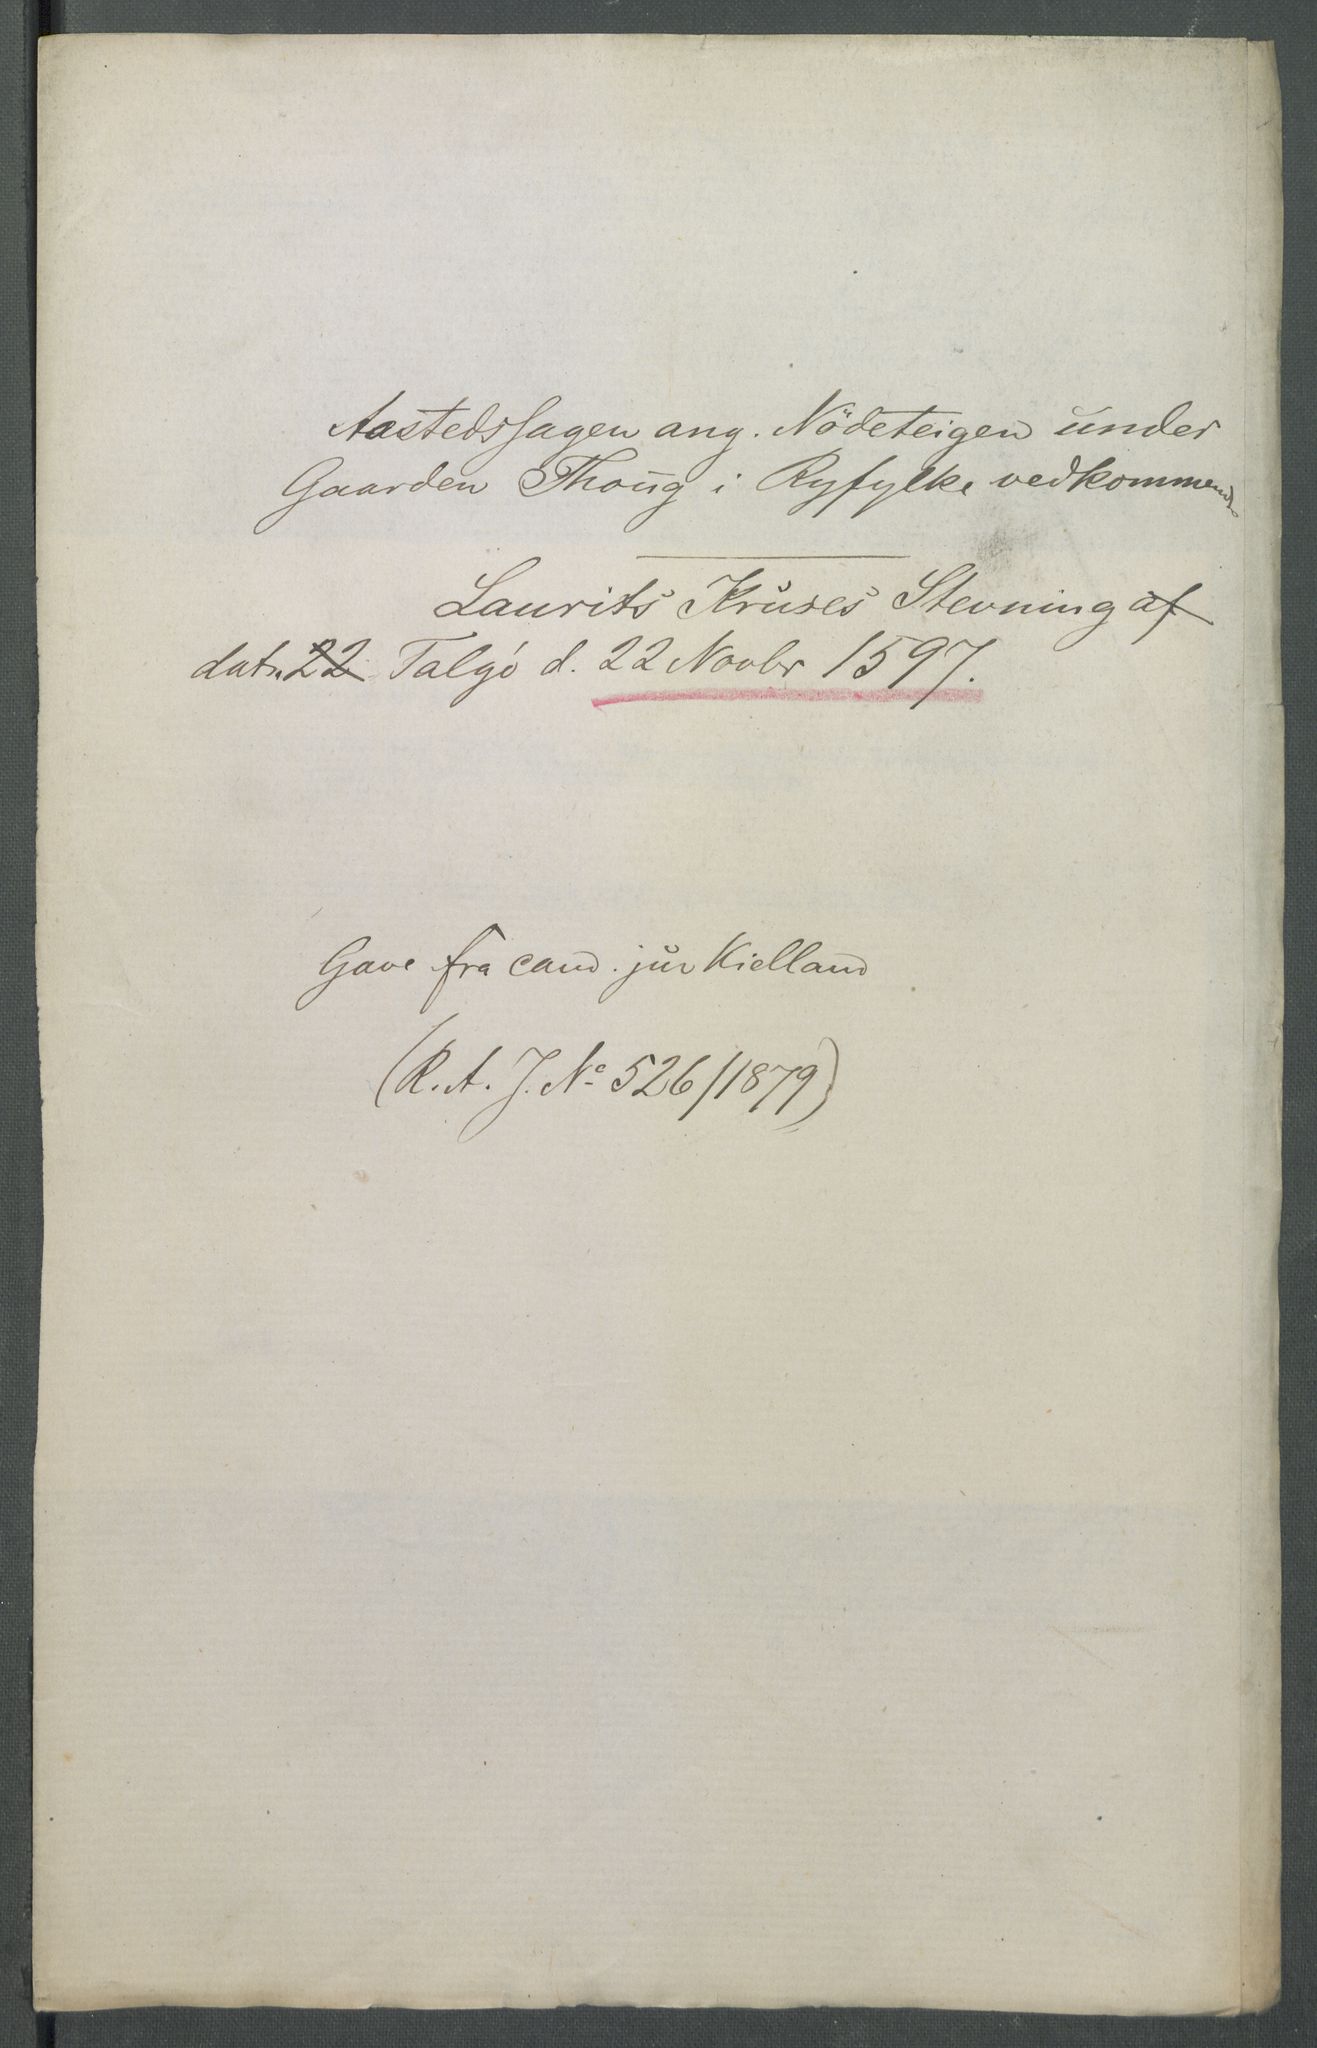 Aastedssagen ang. Nödeteigen under
Gaarden Thoug i Ryfylke vedkommende
Laurits Kruses Stevning af
dat. 22 Talgö d. 22 Novbr 1597.
Gave fra cand. jur Kielland
(R. A. J. No 526/1879)